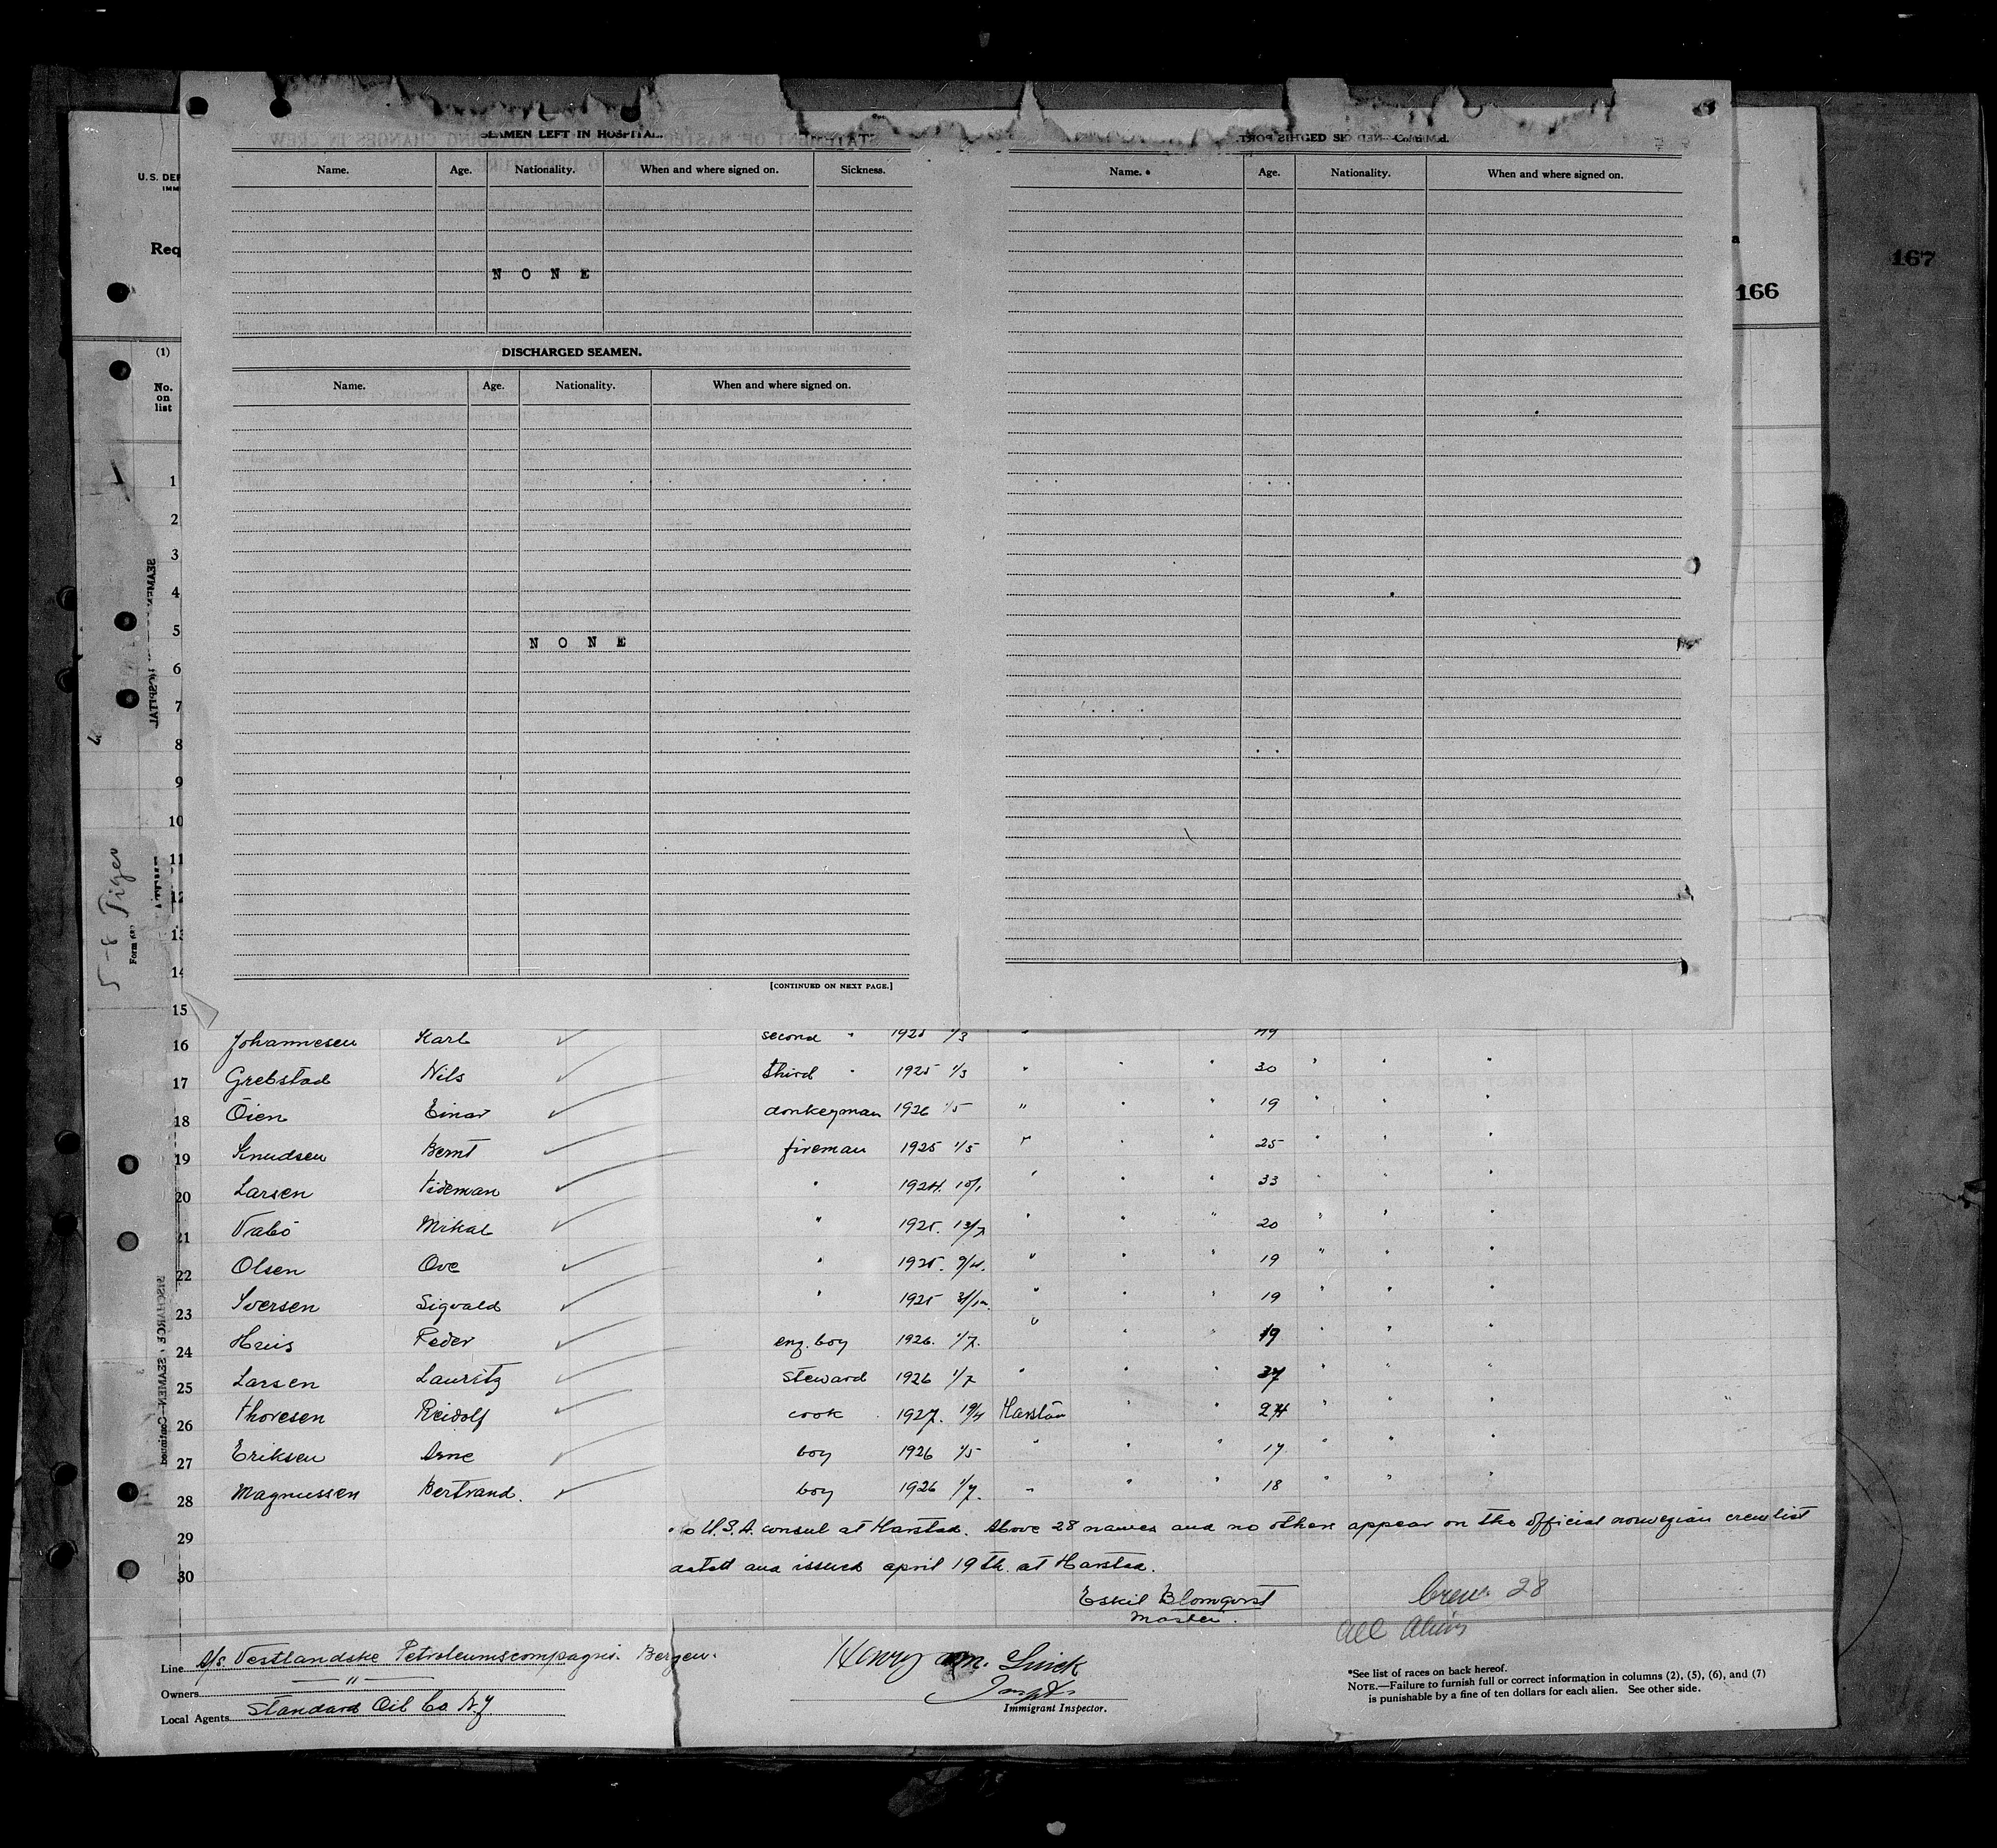 SEAMEN LEFT IN HOSPITAL.
Name. Age. Nationality. When and where signed on. Sickness.
N O N E
DISCHARGED SEAMEN.
Name. Age. Nationality. When and where signed on.
N O N E
[CONTINUED ON NEXT PAGE.]
Name. Age. Nationality. When and where signed on.
167
166
U.S. DE
IMM
Req
(1)
No.
on
list
1
2
3
4
5
6
7
8
9
10
11
12
13
14
15
5-8 Tiger
Form
16 Johannesen Karl second " 1925 1/3 "
17 Grebstad Nils third " 1925 1/3 " " " 30 " " "
18 Öien Einar donkeyman 1926 1/5 " " " 19 " " "
19 Knudsen Bernt fireman 1925 1/5 " " " 25 " " "
20 Larsen Tideman " 1924. 10/1 " " " 33 " " "
21 Mikal " 1925. 13/7 " " " 20 " " "
22 Olsen Ove " 1925. 9/4. " " " 19 " " "
23 Iversen Sigvald " 1925 31/12. " " " 19 " " "
24 Peder eng. boy 1926. 1/7. " " " 19 " " "
25 Larsen Lauritz steward 1926 1/7 " " " 37 " " "
26 Thoresen Reidolf cook 1927. 19/4 Harstad " " 24 " " "
27 Eriksen Arne boy 1926 1/5 " " " 17 " " "
28 Magnussen Bertrand. boy 1926 1/7. " " " 18 " " "
29 To U.S.A. consul at Harstad. Above 28 names and no others appear on the official norwegian crewlist
30 dated and issued april 19th. at Harstad.
Eskil Blomqvist
Master.
Crew 28
All Aliens
Line A/s. Vestlandske Petroleumscompagni. Bergen.
Owners — " —
Local Agents Standard Oil Co. N.Y.
Henry
Immigrant Inspector.
*See list of races on back hereof.
NOTE.—Failure to furnish full or correct information in columns (2), (5), (6), and (7)
is punishable by a fine of ten dollars for each alien. See other side.